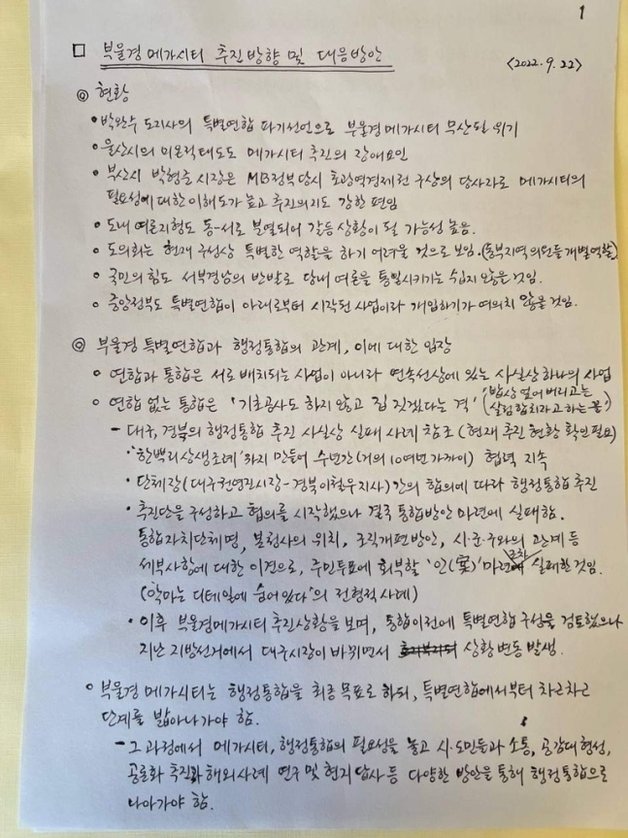 1
□ 부울경 메가시티 추진방향 및 대응방안
<2022. 9. 22>
◎ 현황
• 박완수 도지사의 특별연합 파기선언으로 부울경 메가시티 무산될 위기
• 울산시의 미온적 태도도 메가시티 추진의 장애요인
• 부산시 박형준 시장은 MB정부 당시 초광역경제권 구상의 당사자로 메가시티의
필요성에 대한 이해도가 높고 추진의지도 강한 편임
• 도내 여론지형도 동-서로 분열되어 갈등상황이 될 가능성 높음.
• 도의회는 현재 구성상 특별한 역할을 하기 어려울 것으로 보임. (동부지역 의원들 개별역할)
• 국민의 힘도 서부경남의 반발로 당내 여론을 통일시키기는 쉽지 않을 것임.
• 중앙정부도 특별연합이 아래로부터 시작된 사업이라 개입하기가 여의치 않을 것임.
◎ 부울경 특별연합과 행정통합의 관계, 이에 대한 입장
○ 연합과 통합은 서로 배치되는 사업이 아니라 연속선상에 있는 사실상 하나의 사업
○ 연합 없는 통합은 '기초공사도 하지 않고 집 짓겠다는 격' ('밥상 엎어버리고는
살림 합치자고 하는 꼴')
- 대구, 경북의 행정통합 추진 사실상 실패 사례 참조 (현재 추진 현황 확인 필요)
• '한뿌리상생조례'까지 만들어 수년간(거의 10여년 가까이) 협력 지속
• 단체장(대구 권영진시장-경북 이철우지사)간의 합의에 따라 행정통합 추진
• 추진단을 구성하고 협의를 시작했으나 결국 통합방안 마련에 실패함.
통합자치단체명, 본청사의 위치, 조직개편방안, 시·군·구와의 관계 등
세부사항에 대한 이견으로, 주민투표에 회부할 '안(案)'마련에 실패한 것임.
('악마는 디테일에 숨어있다'의 전형적 사례)
• 이후 부울경메가시티 추진상황을 보며, 통합 이전에 특별연합 구성을 검토했으나
지난 지방선거에서 대구시장이 바뀌면서 상황 변동 발생.
○ 부울경 메가시티는 행정통합을 최종 목표로 하되, 특별연합에서부터 차근차근
단계를 밟아나가야 함.
- 그 과정에서 메가시티, 행정통합의 필요성을 놓고 시·도민들과 소통, 공감대 형성,
공론화 추진과 해외사례 연구 및 현지 답사 등 다양한 방안을 통해 행정통합으로
나아가야 함.